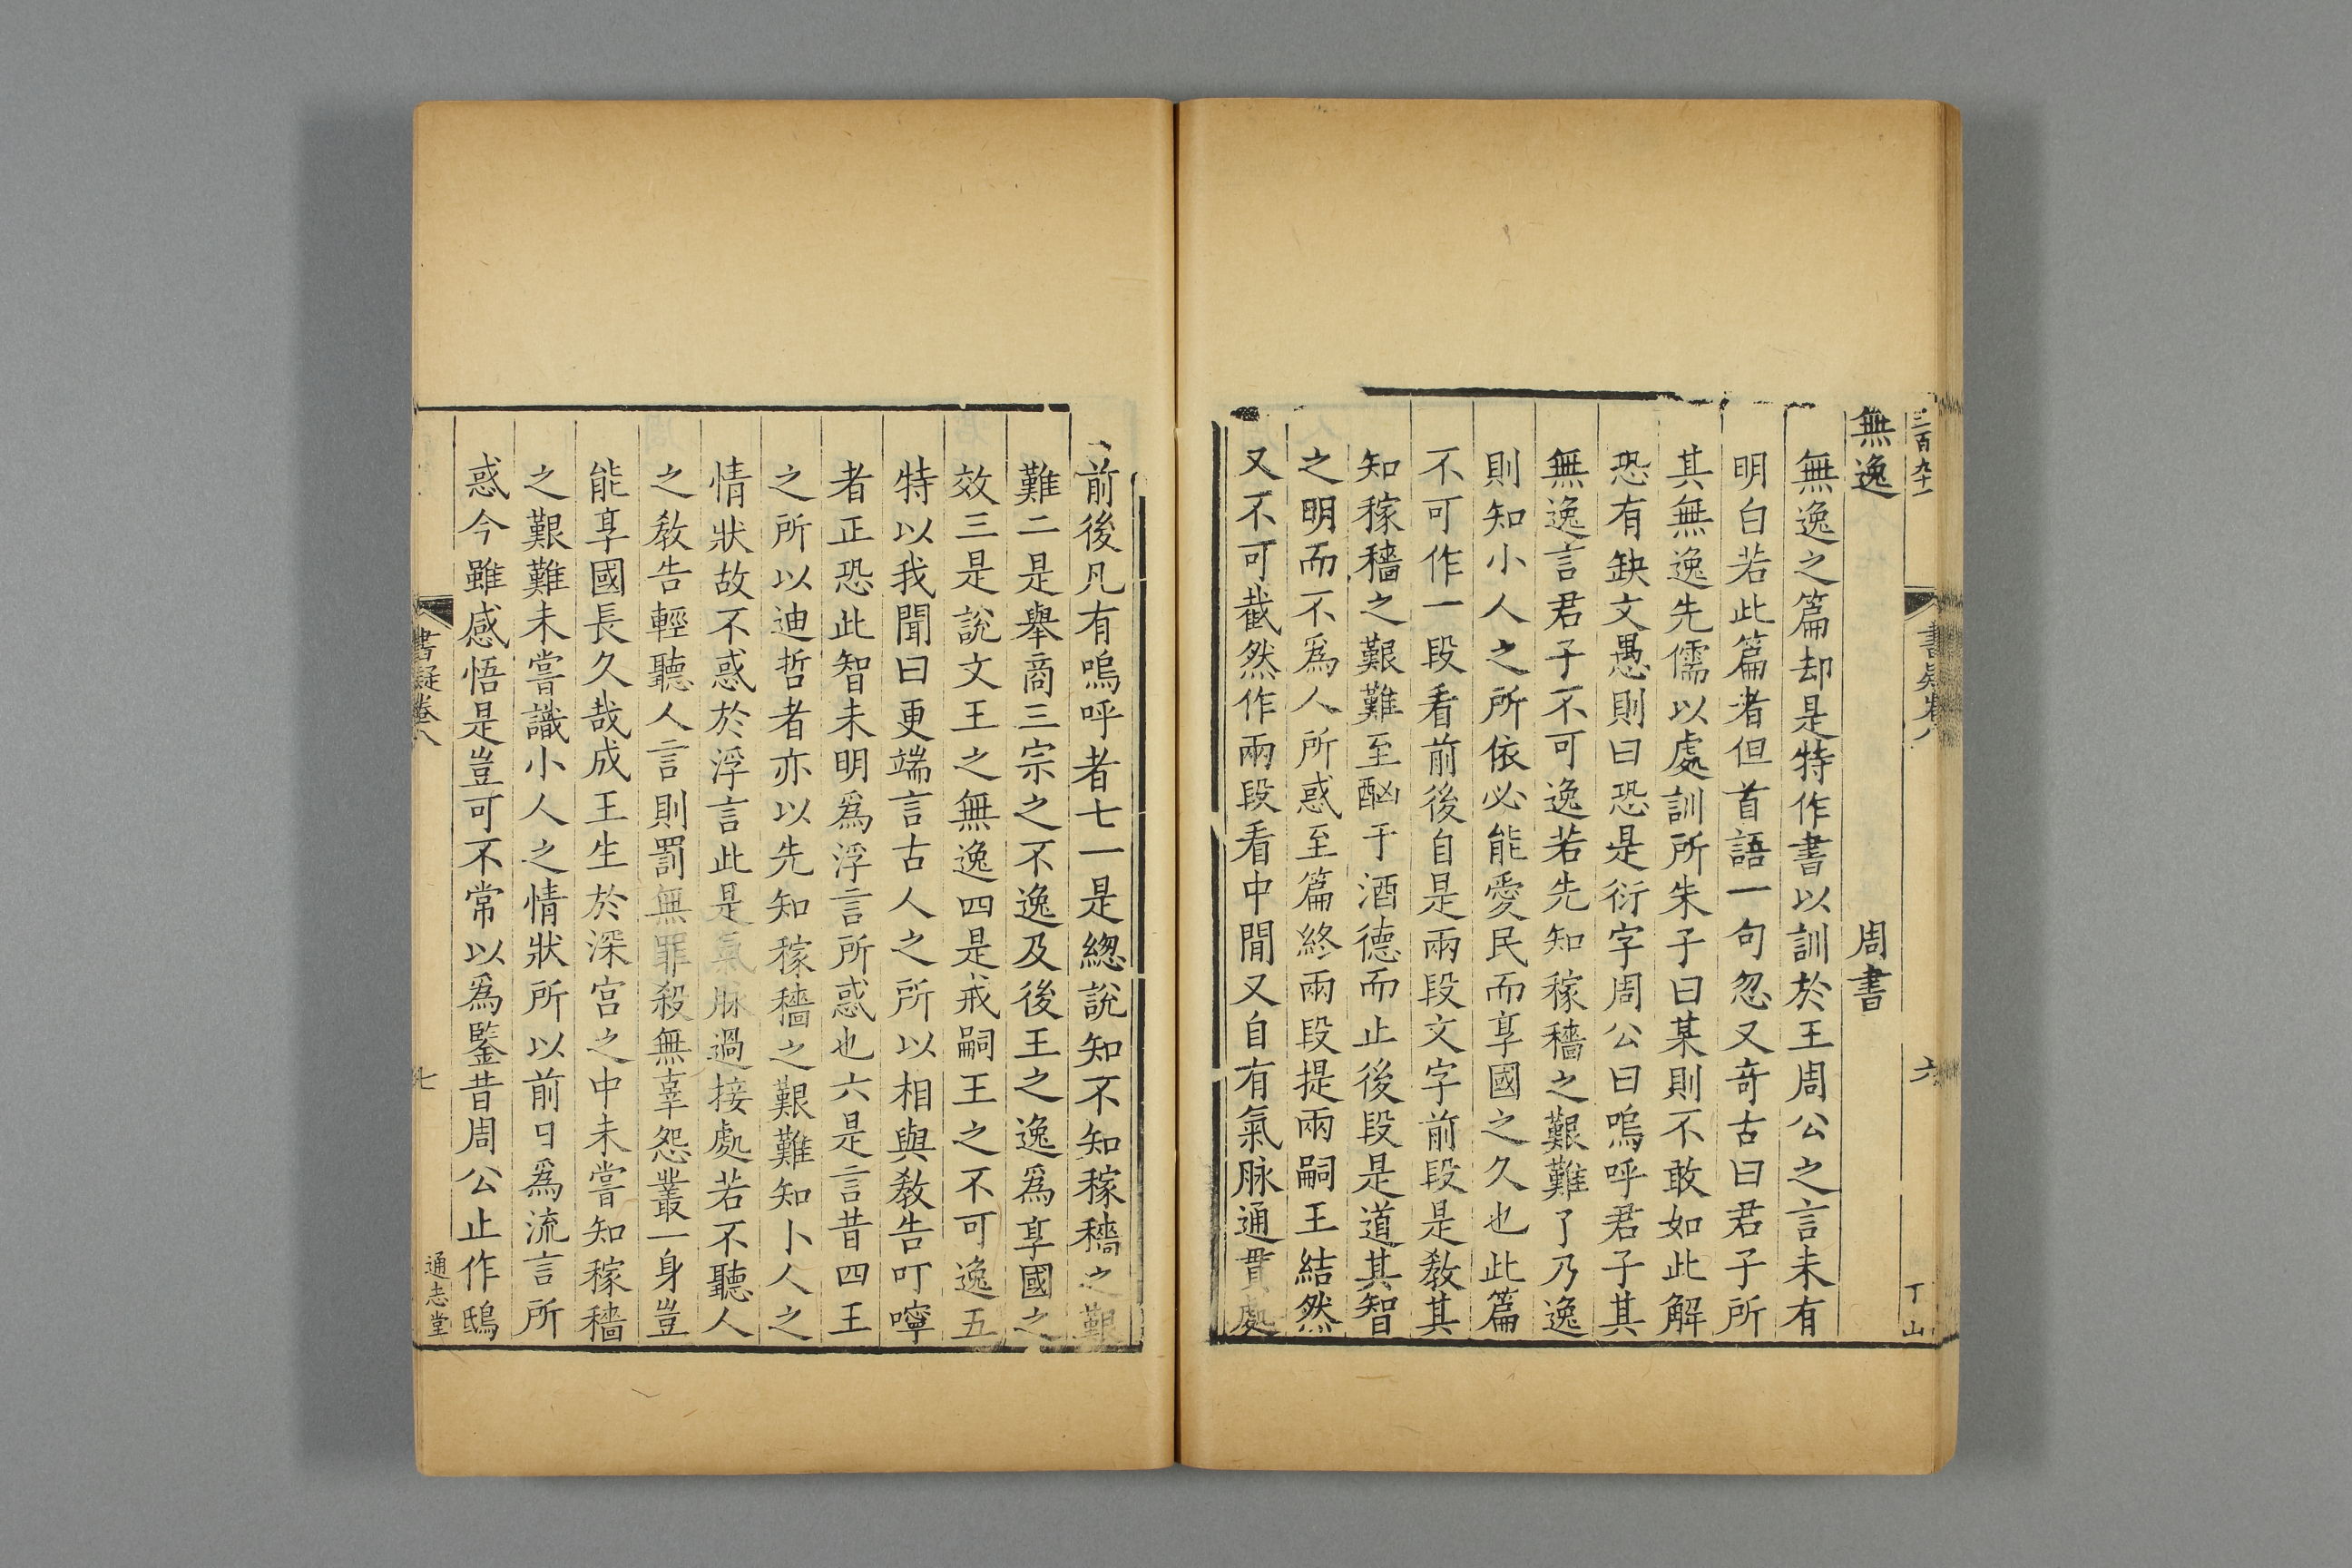 三百九十一
書疑卷八
六
丁山
無逸
周書
無逸之篇却是特作書以訓於王周公之言未有
明白若此篇者但首語一句忽又竒古曰君子所
其無逸先儒以處訓所朱子曰某則不敢如此解
恐有缺文愚則曰恐是衍字周公曰嗚呼君子其
無逸言君子不可逸若先知稼穡之艱難了乃逸
則知小人之所依必能愛民而享國之久也此篇
不可作一段看前後自是兩段文字前段是敎其
知稼穡之艱難至酗于酒德而止後段是道其智
之明而不爲人所惑至篇終兩段提兩嗣王結然
又不可截然作兩段看中間又自有氣脉通貫處
前後凡有嗚呼者七一是緫說知不知稼穡之艱
難二是舉商三宗之不逸及後王之逸爲享國之
效三是說文王之無逸四是戒嗣王之不可逸五
特以我聞曰更端言古人之所以相與敎告叮嚀
者正恐此智未明爲浮言所惑也六是言昔四王
之所以迪哲者亦以先知稼穡之艱難知卜人之
情狀故不惑於浮言此是氣脉過接處若不聽人
之敎告輕聽人言則罰無罪殺無辜怨叢一身豈
能享國長久哉成王生於深宫之中未嘗知稼穡
之艱難未嘗識小人之情狀所以前日爲流言所
惑今雖感悟是豈可不常以爲鑒昔周公止作鴟
書疑卷八
七
通志堂